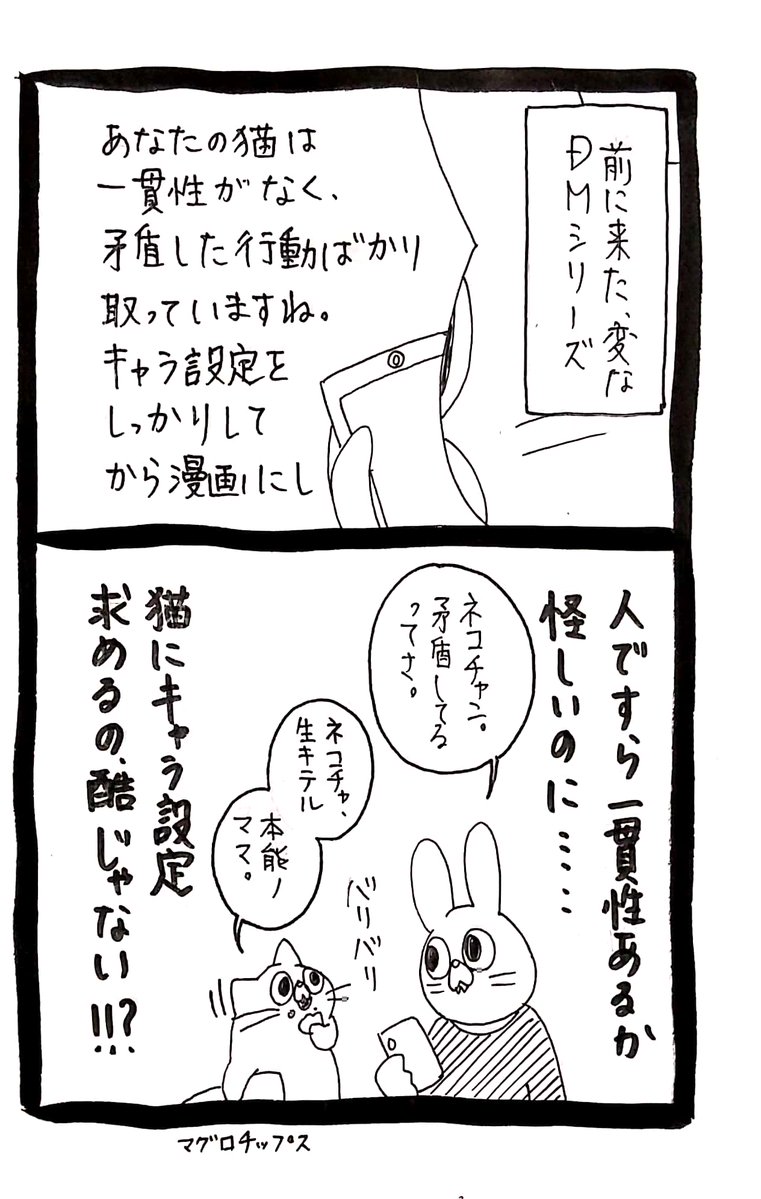 前に来た、変な
DMシリーズ
あなたの猫は
一貫性がなく、
矛盾した行動ばかり
取っていますね。
キャラ設定を
しっかりして
から漫画にし
人ですら一貫性あるか
怪しいのに……
ネコチャン。
矛盾してる
ってさ。
ネコチャ、
生キテル
本能ノ
ママ。
バリバリ
猫にキャラ設定
求めるの、酷じゃない!!?
マグロチップス